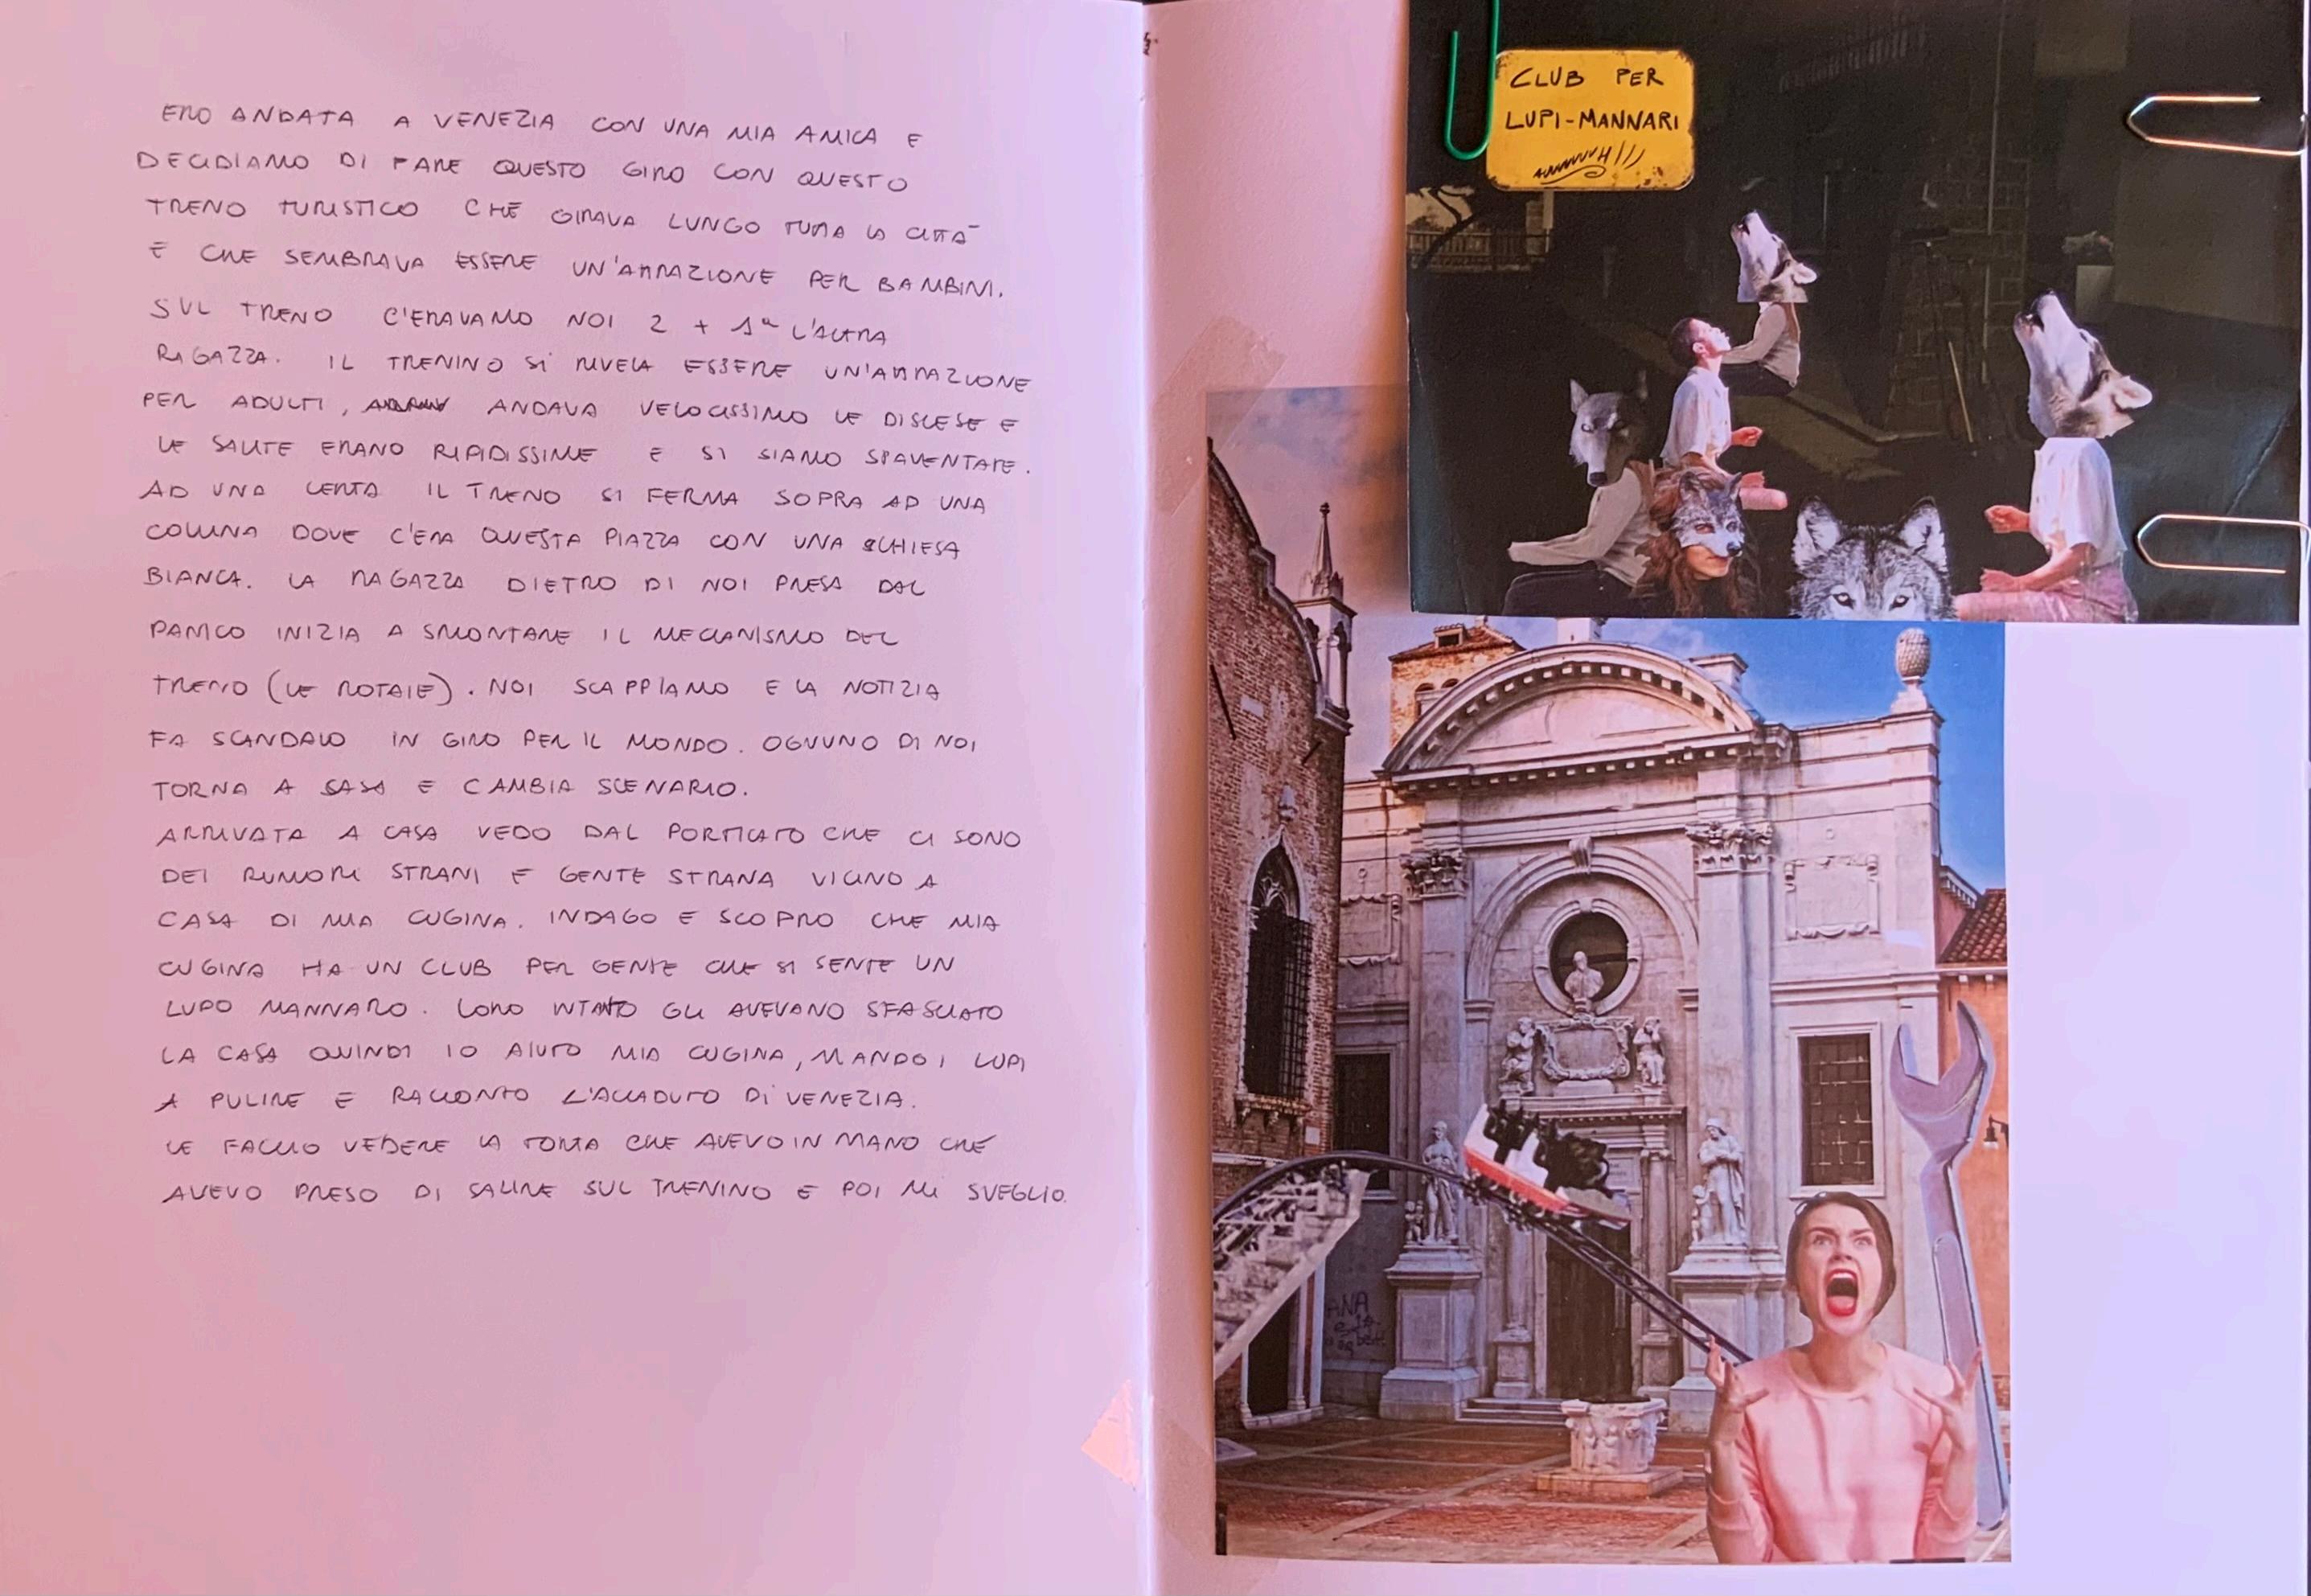 ERO ANDATA A VENEZIA CON UNA MIA AMICA E
DECIDIAMO DI FARE QUESTO GIRO CON QUESTO
TRENO TURISTICO CHE GIRAVA LUNGO TUTTA LA CITTÀ
E CHE SEMBRAVA ESSERE UN'ATTRAZIONE PER BAMBINI.
SUL TRENO C'ERAVAMO NOI 2 + 1ª L'ALTRA
RAGAZZA. IL TRENINO SI RIVELA ESSERE UN'ATTRAZIONE
PER ADULTI, ANDAVA VELOCISSIMO LE DISCESE E
LE SALITE ERANO RIPIDISSIME E SI SIAMO SPAVENTATE.
AD UNA CERTA IL TRENO SI FERMA SOPRA AD UNA
COLLINA DOVE C'ERA QUESTA PIAZZA CON UNA CHIESA
BIANCA. LA RAGAZZA DIETRO DI NOI PRESA DAL
PANICO INIZIA A SMONTARE IL MECCANISMO DEL
TRENO (LE ROTAIE). NOI SCAPPIAMO E LA NOTIZIA
FA SCANDALO IN GIRO PER IL MONDO. OGNUNO DI NOI
TORNA A CASA E CAMBIA SCENARIO.
ARRIVATA A CASA VEDO DAL PORTICATO CHE CI SONO
DEI RUMORI STRANI E GENTE STRANA VICINO A
CASA DI MIA CUGINA. INDAGO E SCOPRO CHE MIA
CUGINA HA UN CLUB PER GENTE CHE SI SENTE UN
LUPO MANNARO. LORO INTANTO GLI AVEVANO SFASCIATO
LA CASA QUINDI IO AIUTO MIA CUGINA, MANDO I LUPI
A PULIRE E RACCONTO L'ACCADUTO DI VENEZIA.
LE FACCIO VEDERE LA TORTA CHE AVEVO IN MANO CHE
AVEVO PRESO DI SALIRE SUL TRENINO E POI MI SVEGLIO.
CLUB PER
LUPI-MANNARI
ANA